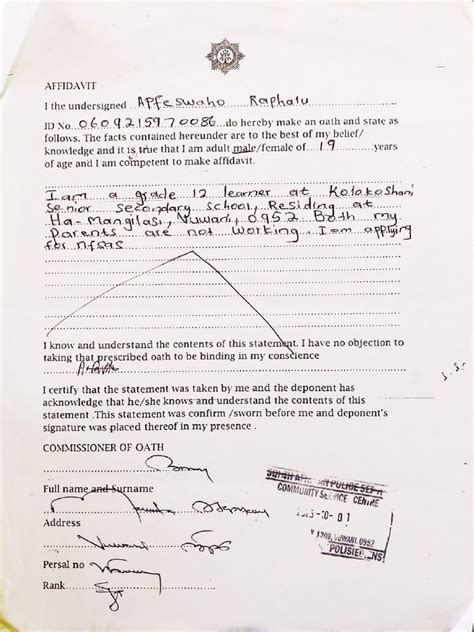 AFFIDAVIT
I the undersigned Apfeswaho Raphalu
ID No. 0609215970086 do hereby make an oath and state as
follows. The facts contained hereunder are to the best of my belief/
knowledge and it is true that I am adult male/female of 19 years
of age and I am competent to make affidavit.
I am a grade 12 learner at Kolokoshani
Senior secondary school, Residing at
Ha-Mangilasi, Vuwani, 0952. Both my
Parents are not working. I am applying
for nfsas
I know and understand the contents of this statement. I have no objection to
taking that prescribed oath to be binding in my conscience
I certify that the statement was taken by me and the deponent has
acknowledge that he/she knows and understand the contents of this
statement .This statement was confirm /sworn before me and deponent's
signature was placed thereof in my presence .
COMMISSIONER OF OATH
Full name and Surname
Address
Vuwani
Persal no
Rank
POLICE
COMMUNITY SERVICE CENTRE
VUWANI, 0952